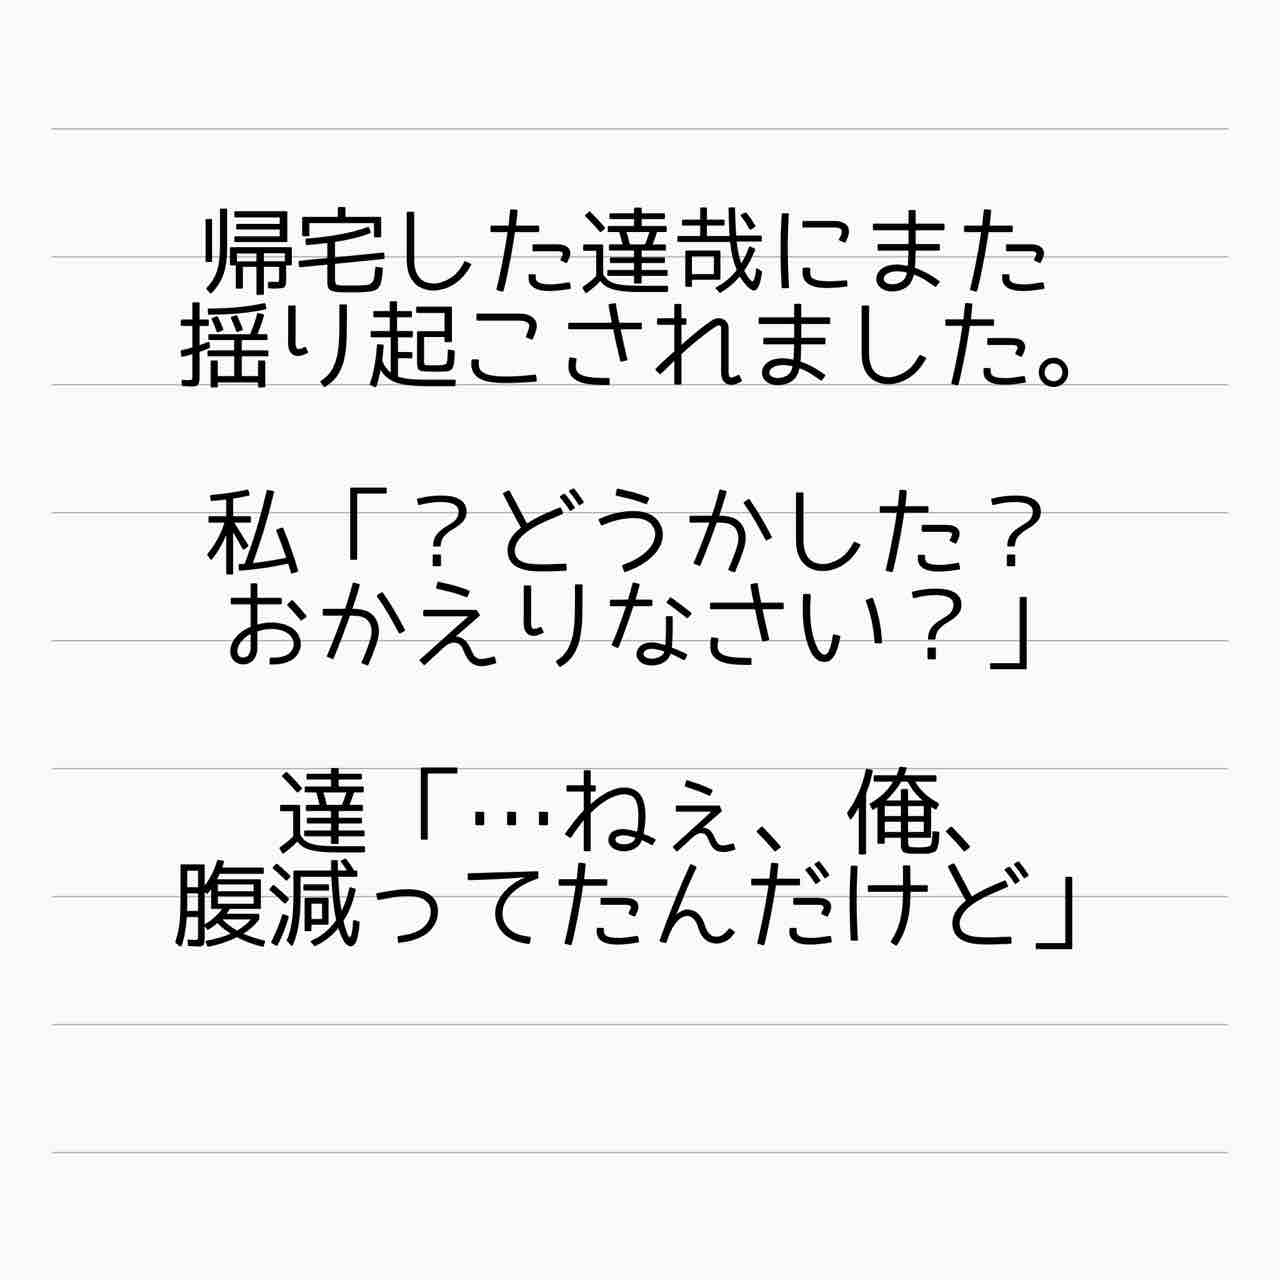 帰宅した達哉にまた
揺り起こされました。
私「？どうかした？
おかえりなさい？」
達「…ねぇ、俺、
腹減ってたんだけど」